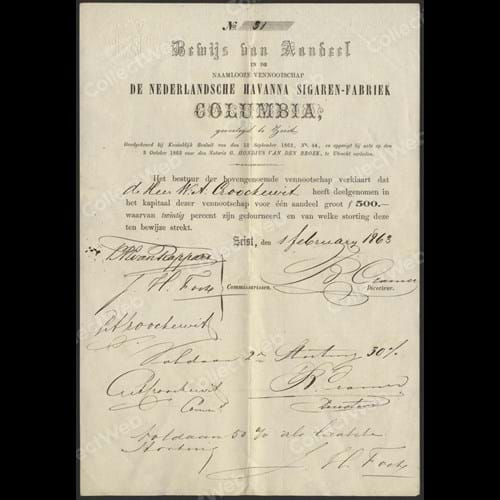 No 31
Bewijs van Aandeel
IN DE
NAAMLOOZE VENNOOTSCHAP
DE NEDERLANDSCHE HAVANNA SIGAREN-FABRIEK
COLUMBIA,
gevestigd te Zeist
Goedgekeurd bij Koninklijk Besluit van den 13 September 1862, No. 44, en opgerigt bij acte op den
3 October 1862 voor den Notaris G. HONDIUS VAN DEN BROEK, te Utrecht verleden.
Het bestuur der bovengenoemde vennootschap verklaart dat
de Heer W. A. Croockewit heeft deelgenomen in
het kapitaal dezer vennootschap voor één aandeel groot ƒ 500.—
waarvan twintig percent zijn gefourneerd en van welke storting deze
ten bewijze strekt.
Zeist, den 1 february 1863
J. H. Fock
Commissarissen.
R Cramer
Directeur.
Croockewit
Voldaan 2de Storting 30%
Croockewit
Com
R. Cramer
Directeur
voldaan 50% als laatste
Storting
J. H. Fock
CollectWeb